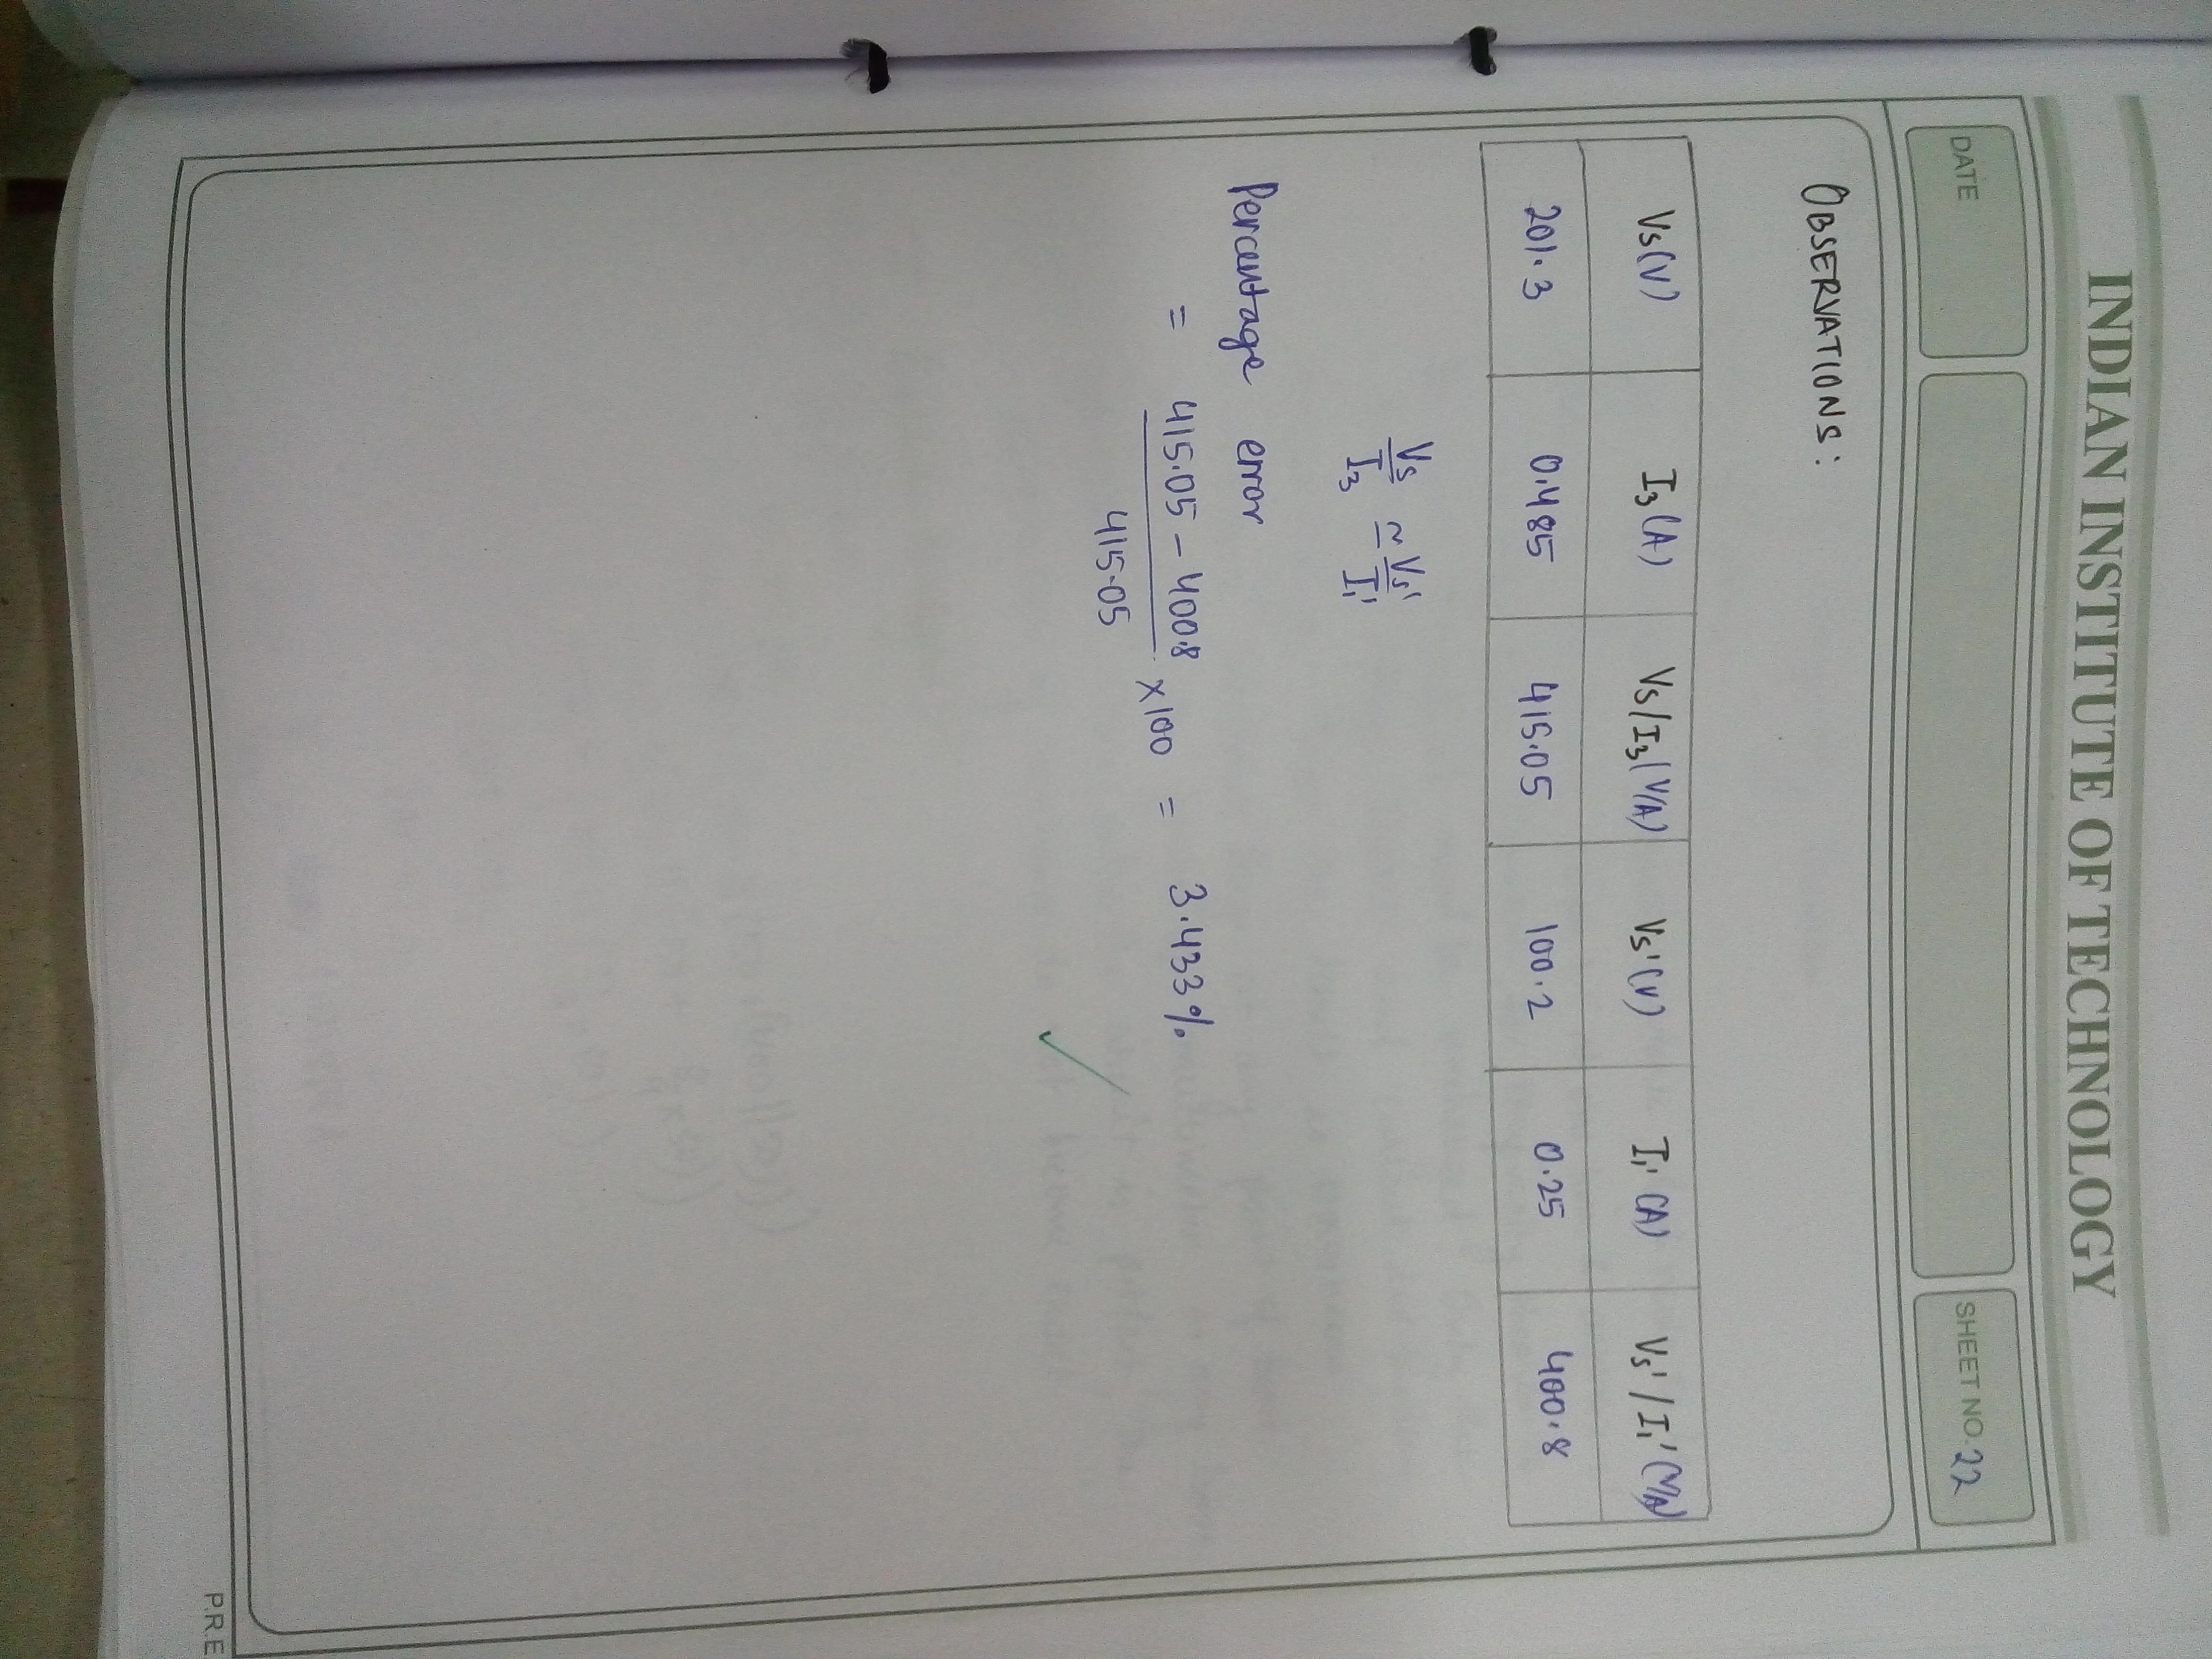 INDIAN INSTITUTE OF TECHNOLOGY
DATE
SHEET NO. 22
OBSERVATIONS:
Vs(V) I3(A) Vs/I3(V/A) Vs'(V) I1'(A) Vs'/I1'(V/A)
201.3 0.485 415.05 100.2 0.25 400.8
Vs/I3 ≃ Vs'/I1'
Percentage error
= (415.05 - 400.8)/415.05 ×100 = 3.433%
P.R.E